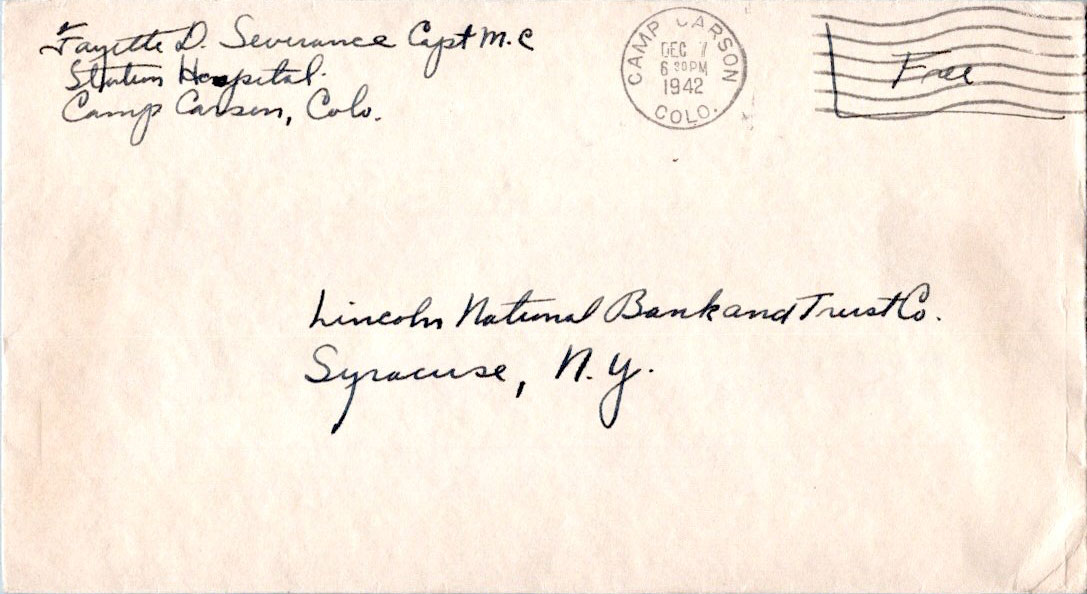 Fayette D. Severance Capt M.C
Station Hospital.
Camp Carson, Colo.
CAMP CARSON
DEC 7
6 30 PM
1942
COLO.
Free
Lincoln National Bank and Trust Co.
Syracuse, N.Y.